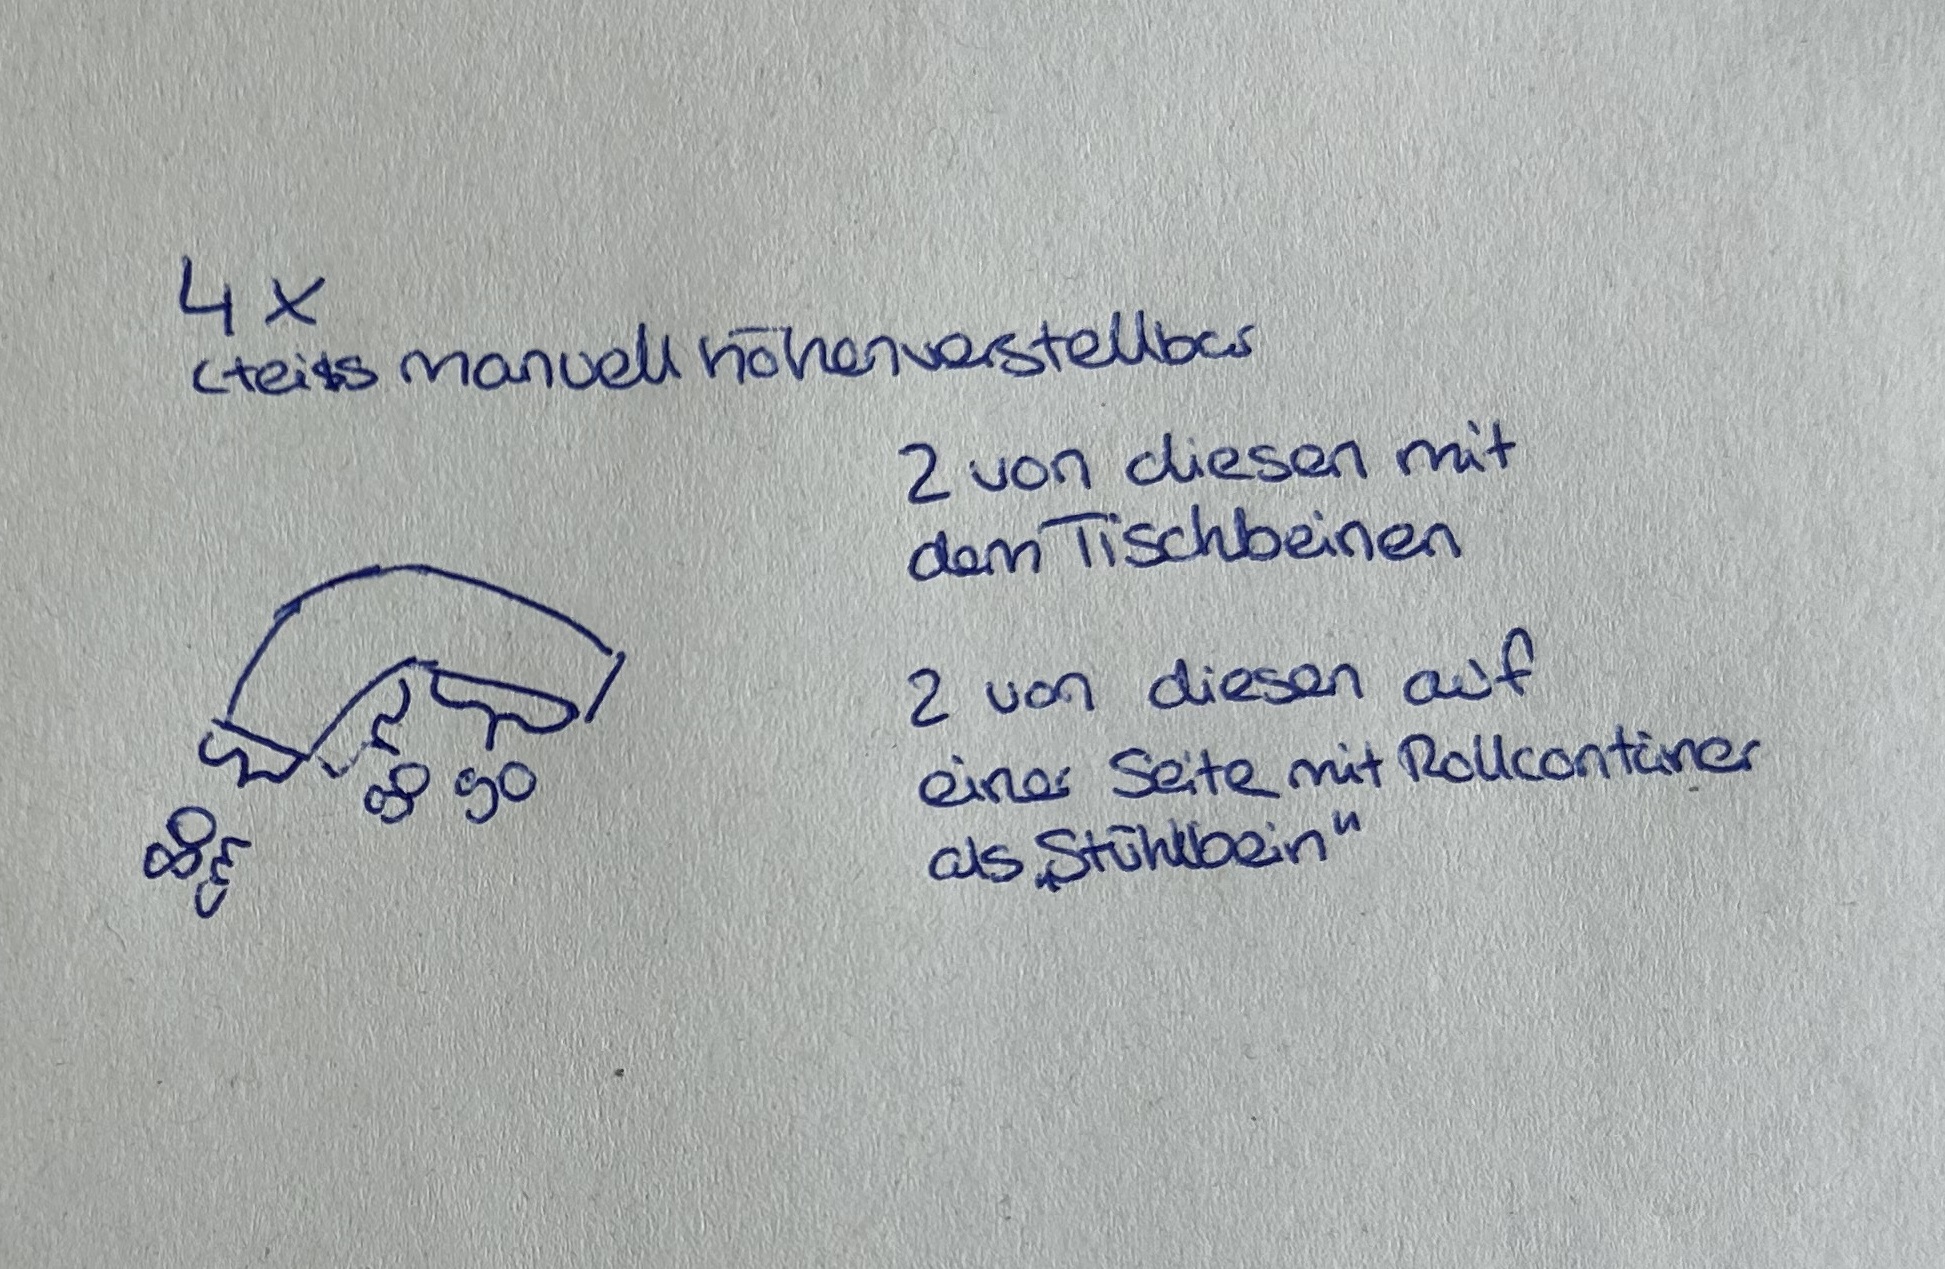 4 x
manuell höhenverstellbar
2 von diesen mit
den Tischbeinen
2 von diesen auf
einer Seite mit Rollcontainer
als „Stuhlbein"